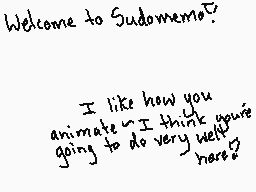 Welcome to Sudomemo♡!
I like how you
animate ~ I think you're
going to do very well
here♡!